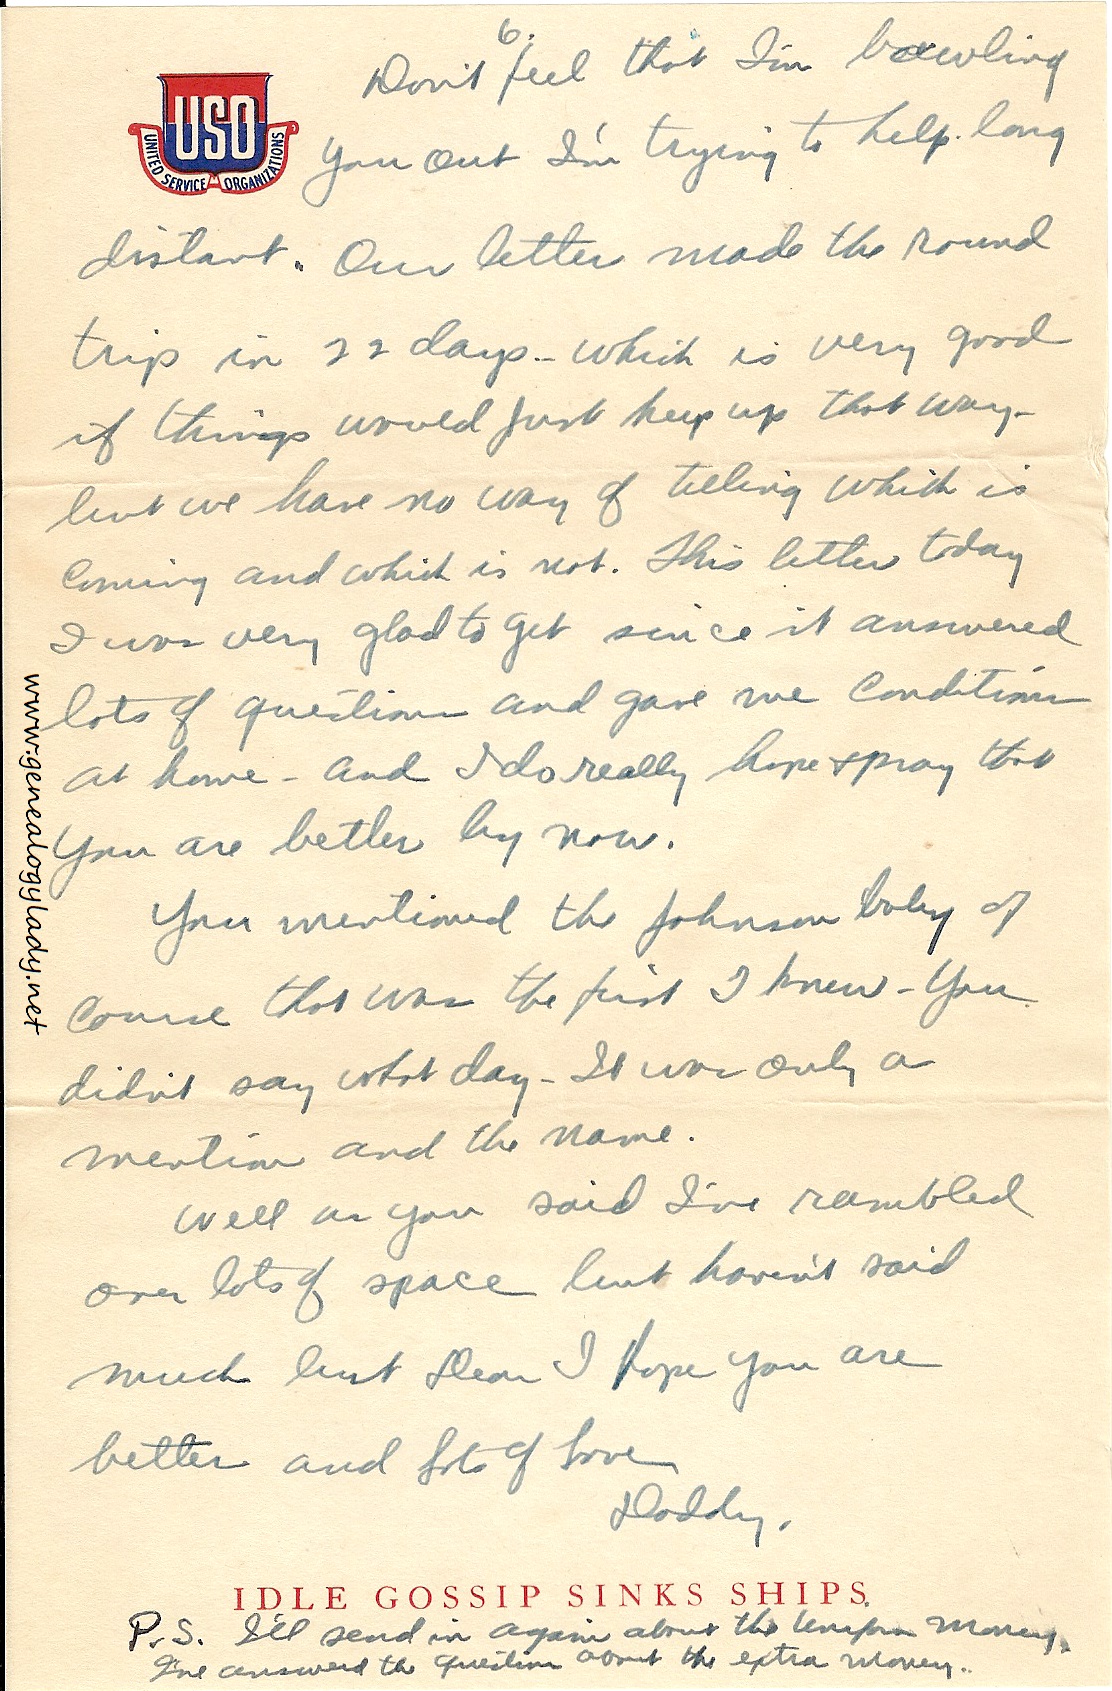 6.
Don't feel that I'm bawling
USO
UNITED SERVICE ORGANIZATIONS
you out I'm trying to help long
distant. Our letter made the round
trip in 22 days - which is very good
if things would just keep up that way -
but we have no way of telling which is
coming and which is not. This letter today
I was very glad to get since it answered
lots of questions and gave me conditions
at home - and I do really hope & pray that
you are better by now.
You mentioned the Johnson baby of
course that was the first I knew - You
didn't say what day - It was only a
mention and the name.
Well as you said I've rambled
over lots of space but haven't said
much but Dear I hope you are
better and lots of love
Daddy.
IDLE GOSSIP SINKS SHIPS.
P.S. I'll send in again about the uniform money.
I've answered the question about the extra money.
www.genealogylady.net